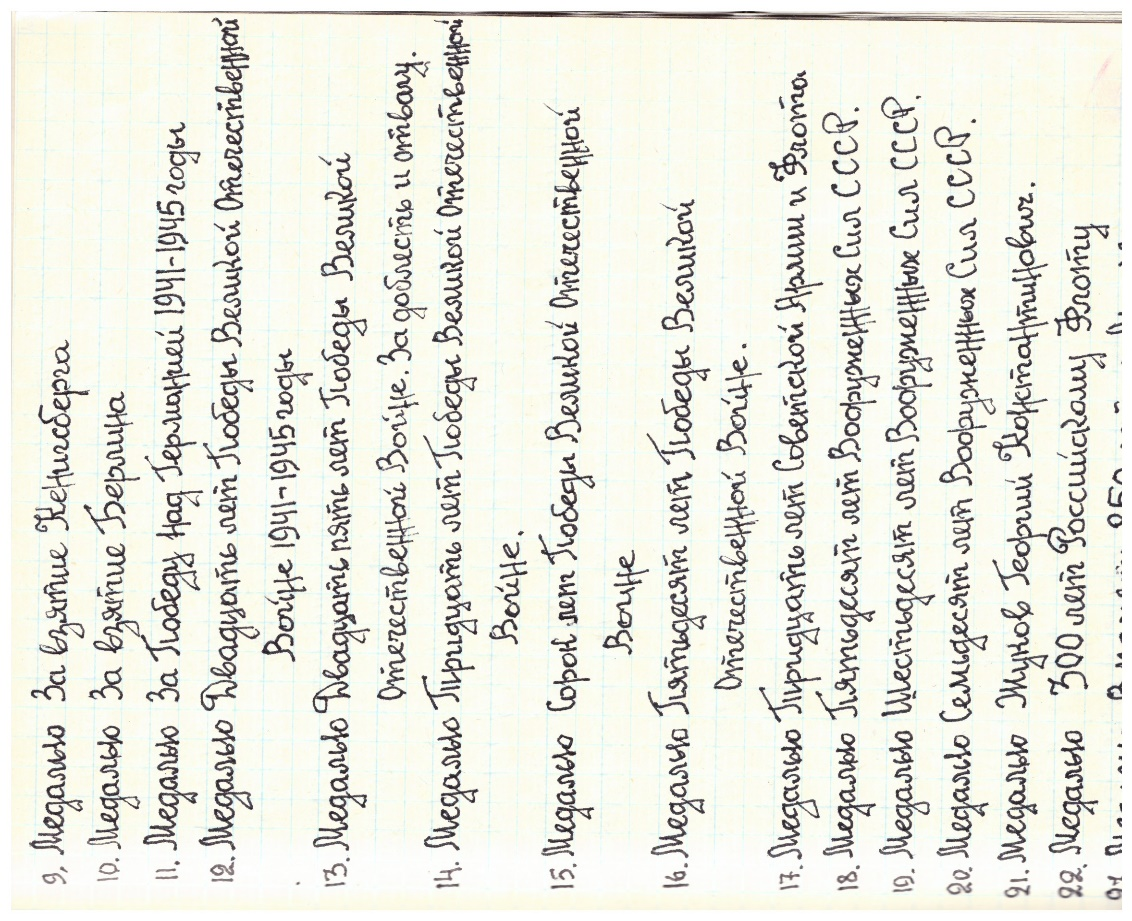 9. Медалью За взятие Кенигсберга
10. Медалью За взятие Берлина
11. Медалью За Победу над Германией 1941-1945 годы
12. Медалью Двадцать лет Победы Великой Отечественной
Войне 1941-1945 годы
13. Медалью Двадцать пять лет Победы Великой
Отечественной Войне. За доблесть и отвагу.
14. Медалью Тридцать лет Победы Великой Отечественной
Войне.
15. Медалью Сорок лет Победы Великой Отечественной
Войне
16. Медалью Пятьдесят лет Победы Великой
Отечественной Войне.
17. Медалью Тридцать лет Советской Армии и Флота
18. Медалью Пятьдесят лет Вооруженных Сил СССР.
19. Медалью Шестьдесят лет Вооруженных Сил СССР.
20. Медалью Семьдесят лет Вооруженных Сил СССР.
21. Медалью Жуков Георгий Константинович.
22. Медалью 300 лет Российскому Флоту